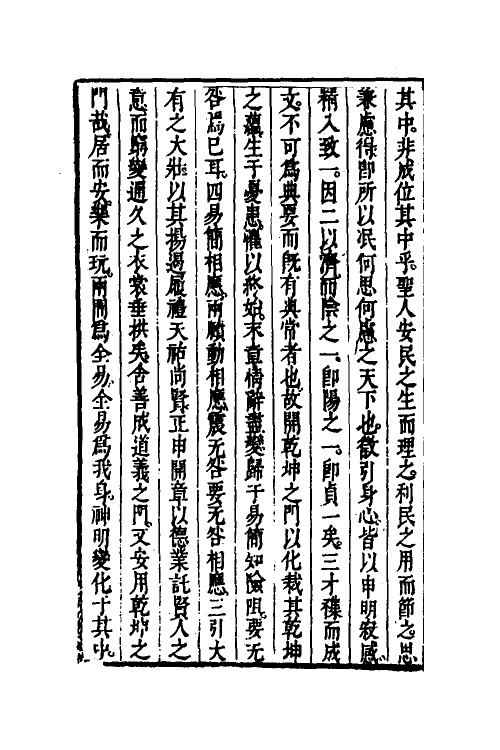 其中非成位其中乎聖人安民之生而理之利民之用而節之思
兼慮得卽所以泯何思何慮之天下也散引身心皆以申明寂感
精入致一因二以濟而陰之一卽陽之一卽貞一矣三才襍而成
文不可爲典要而旣有典常者也故開乾坤之門以化裁其乾坤
之蘊生于憂患懼以終始末章情辭盡變歸于易簡知險阻要无
咎焉已耳四易簡相應兩賾動相應震无咎要无咎相應三引大
有之大壯以其揚遏履禮天祐尚賢正申開章以德業託賢人之
意而窮變通久之衣裳垂拱矣舍善成道義之門又安用乾坤之
門哉居而安樂而玩兩間爲全易全易爲我身神明變化于其中